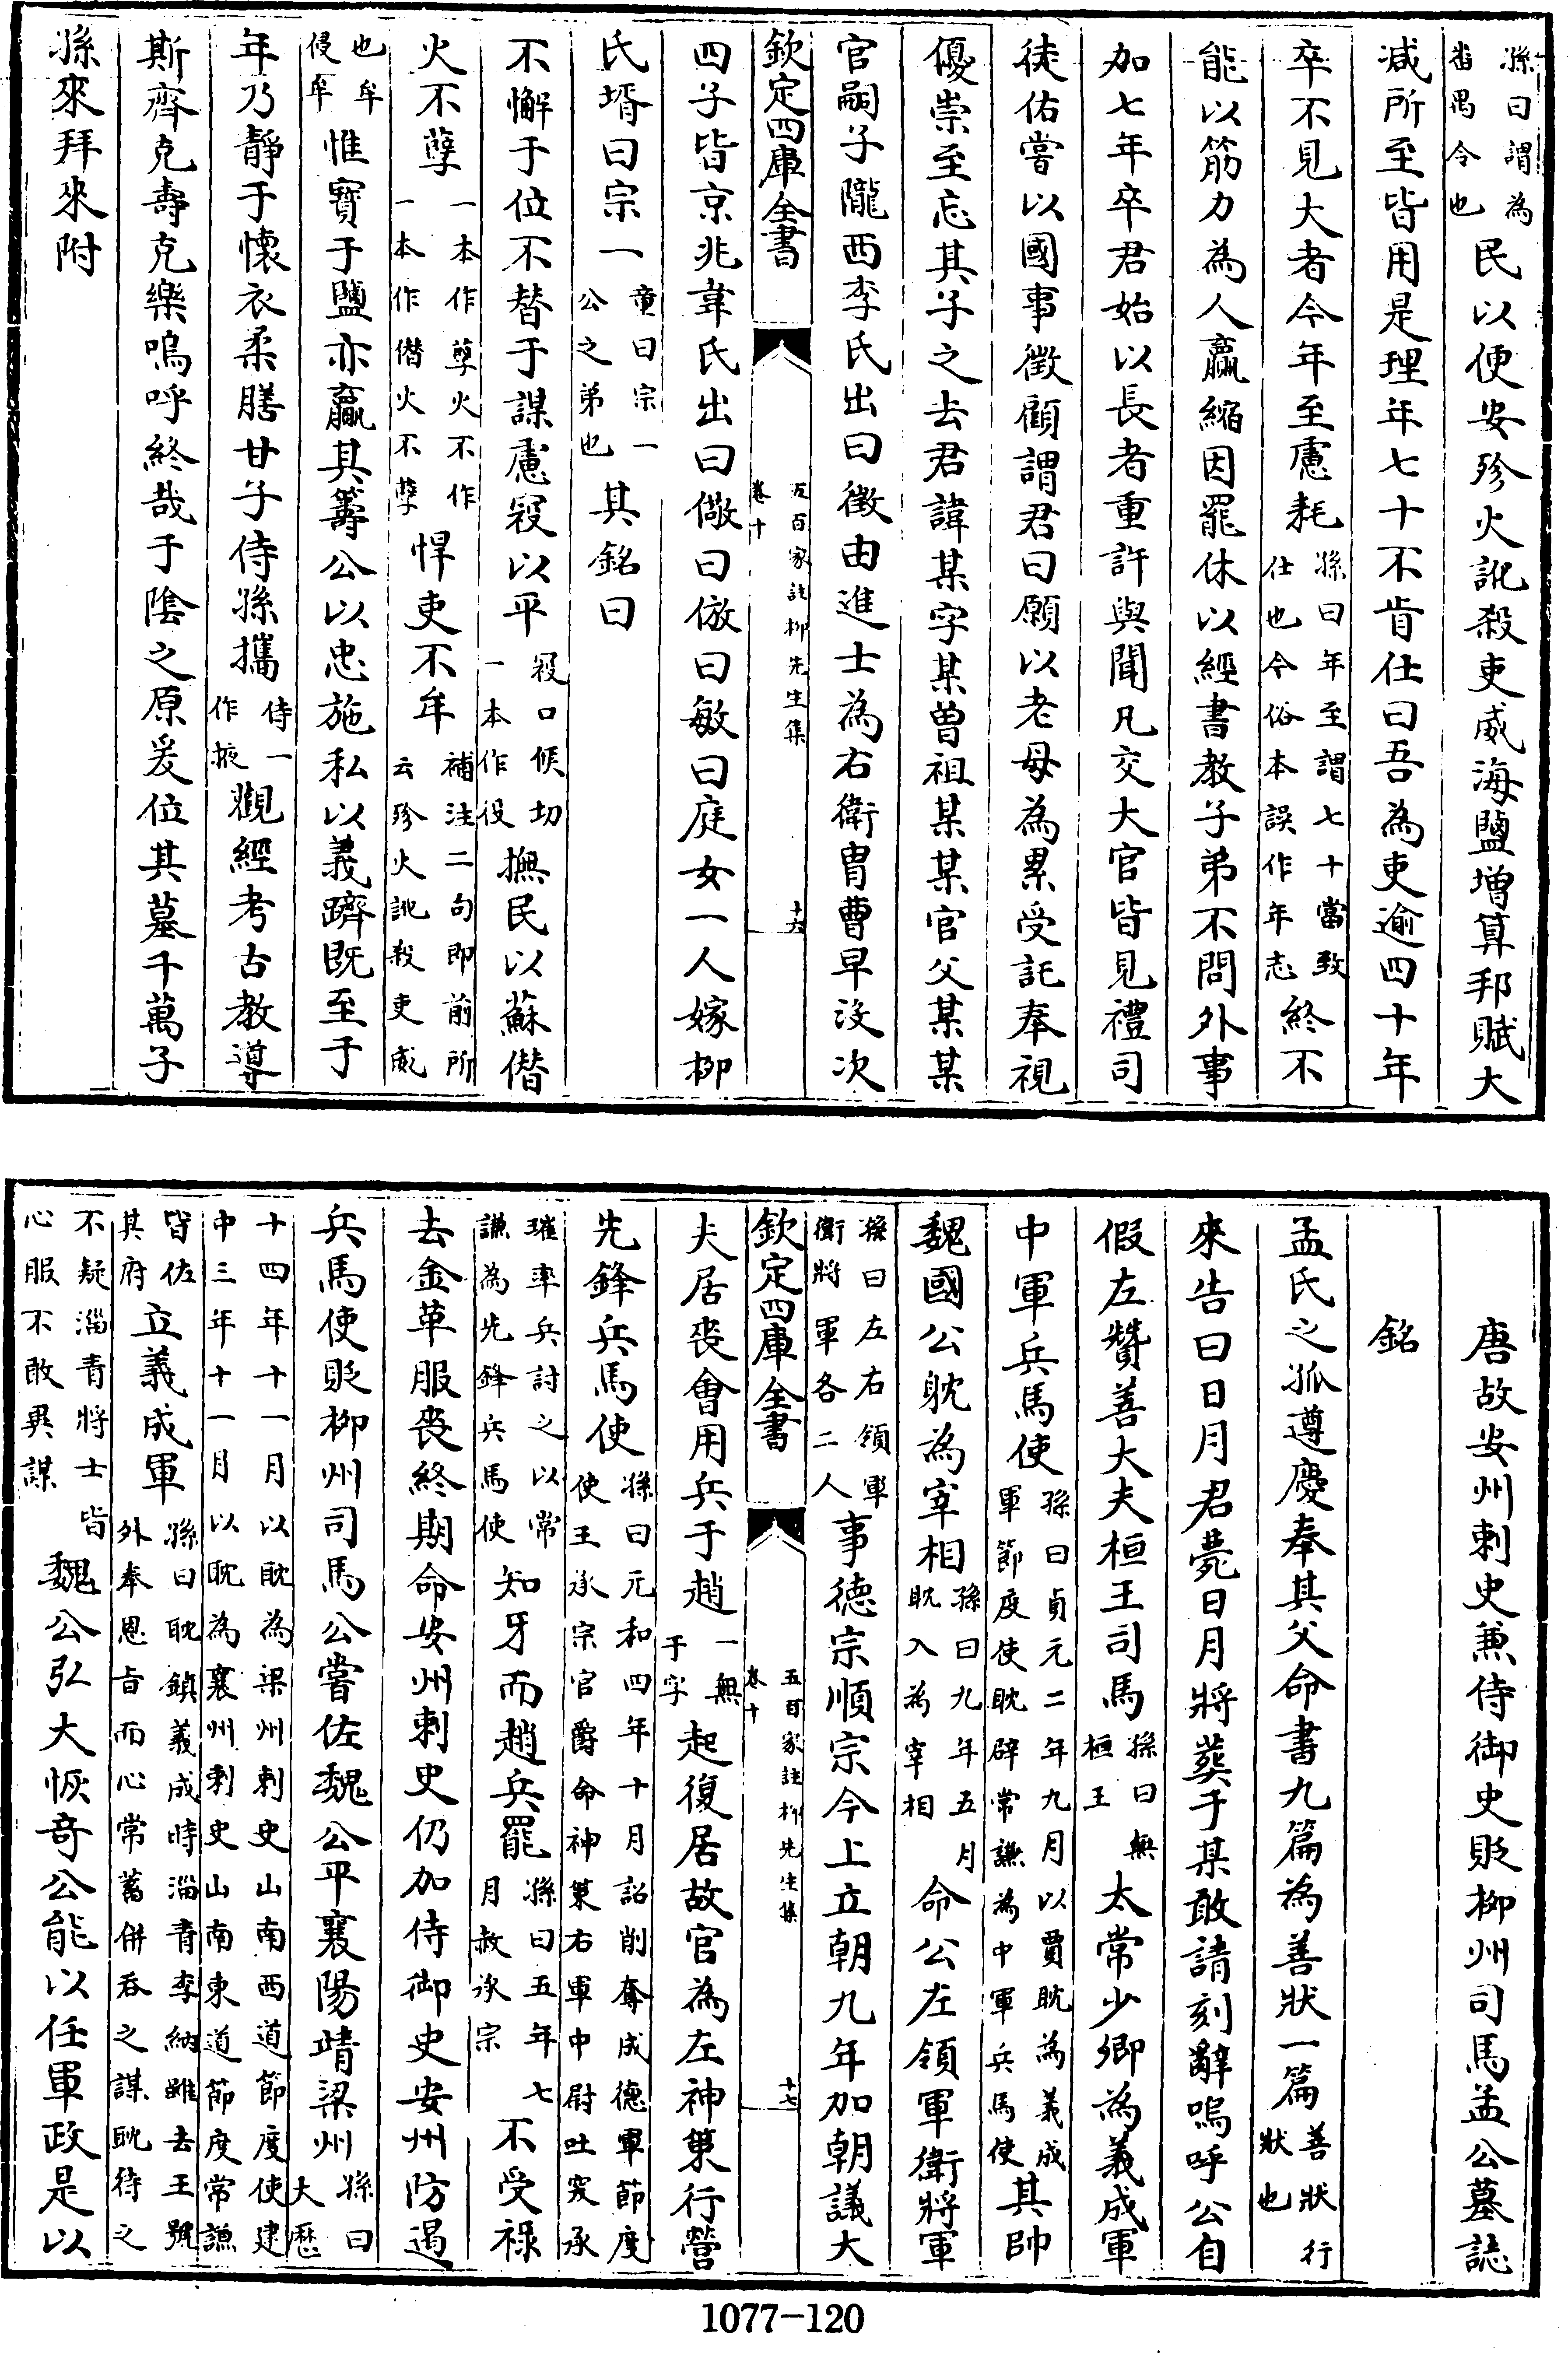 孫曰謂為
畨禺令也民以便安殄火訛殺吏威海鹽增算邦賦大
減所至皆用是理年七十不肯仕曰吾為吏逾四十年
卒不見大者今年至慮耗孫曰年至謂七十當致
仕也今俗本誤作年志終不
能以筋力為人贏縮因罷休以經書教子弟不問外事
加七年卒君始以長者重許與聞凡交大官皆見禮司
徒佑嘗以國事徵顧謂君曰願以老母為累受託奉視
優崇至忘其子之去君諱某字某曾祖某某官父某某
官嗣子隴西李氏出曰徵由進士為右衛胄曹早沒次
欽定四庫全書
五百家註柳先生集
卷十
十六
四子皆京兆韋氏出曰儆曰倣曰敏曰庭女一人嫁柳
氏壻曰宗一童曰宗一
公之弟也其銘曰
不懈于位不替于謀慮𥦬以平𥦬口候切
一本作役撫民以蘇僭
火不孽一本作孽火不作
一本作僭火不孽悍吏不牟補注二句即前所
云殄火訛殺吏威
也牟
侵牟惟寶于鹽亦贏其籌公以忠施私以義躋既至于
年乃靜于懷衣柔膳甘子侍孫攜侍一
作掖觀經考古教導
斯齊克壽克樂嗚呼終哉于陰之原爰位其墓千萬子
孫來拜來附
唐故安州刺史兼侍御史貶柳州司馬孟公墓誌
銘
孟氏之孤遵慶奉其父命書九篇為善狀一篇善狀行
狀也
來告曰日月君薨日月將葬于某敢請刻辭嗚呼公自
假左贊善大夫桓王司馬孫曰無
桓王太常少卿為義成軍
中軍兵馬使孫曰貞元二年九月以賈耽為義成
軍節度使耽辟常謙為中軍兵馬使其帥
魏國公耽為宰相孫曰九年五月
耽入為宰相命公左領軍衛將軍
孫曰左右領軍
衛將軍各二人事德宗順宗今上立朝九年加朝議大
欽定四庫全書
五百家註柳先生集
卷十
十七
夫居喪會用兵于趙一無
于字起復居故官為左神策行營
先鋒兵馬使孫曰元和四年十月詔削奪成德軍節度
使王承宗官爵命神策右軍中尉吐突承
璀率兵討之以常
謙為先鋒兵馬使知牙而趙兵罷孫曰五年七
月赦承宗不受祿
去金革服喪終期命安州刺史仍加侍御史安州防遏
兵馬使貶柳州司馬公嘗佐魏公平襄陽靖梁州孫曰
大歷
十四年十一月以耽為梁州刺史山南西道節度使建
中三年十一月以耽為襄州刺史山南東道節度常謙
皆佐
其府立義成軍孫曰耽鎮義成時淄青李納雖去王號
外奉恩旨而心常蓄併吞之謀耽待之
不疑淄青將士皆
心服不敢異謀魏公弘大恢奇公能以任軍政是以
1077-120